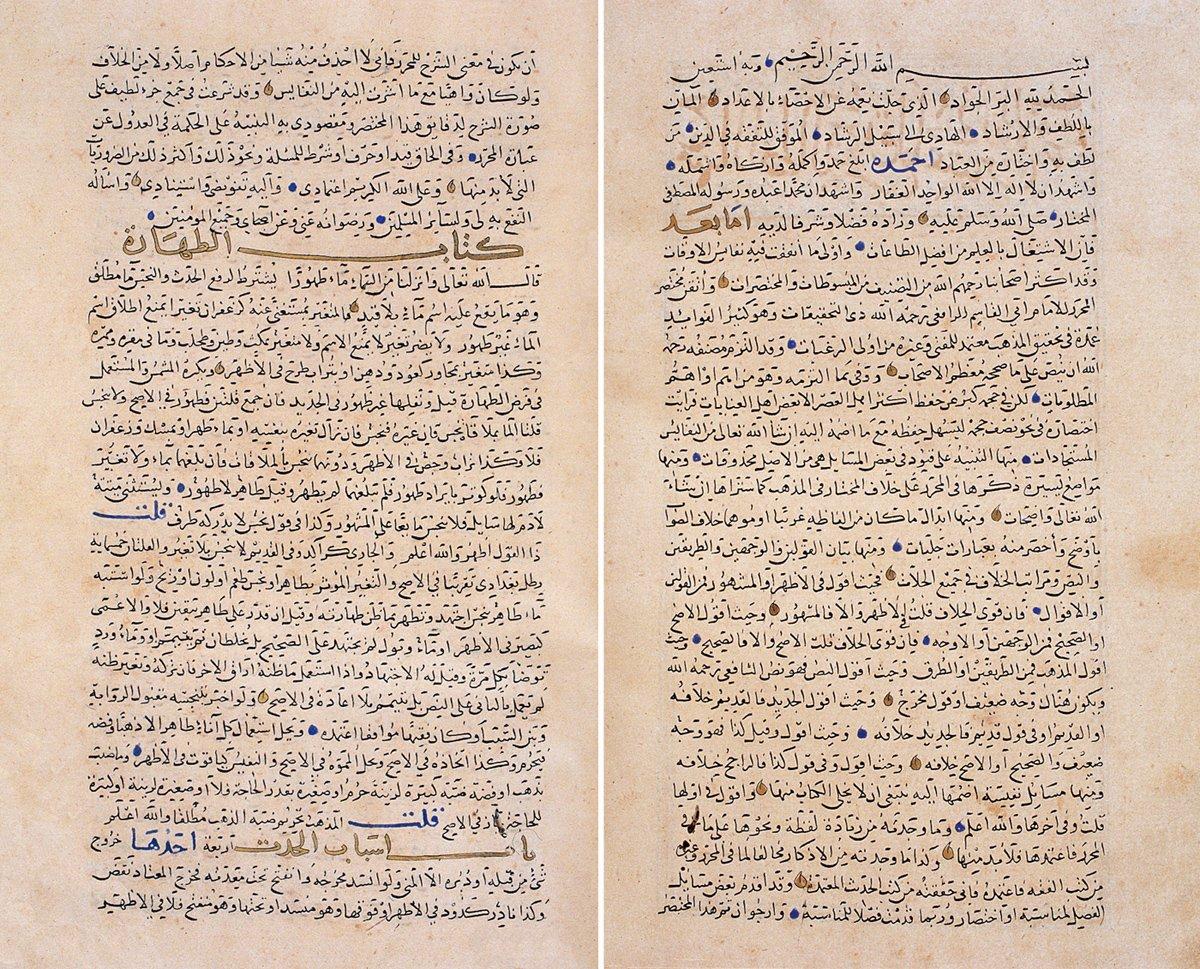 بسم الله الرحمن الرحيم وبه استعين
الحمد لله البر الجواد الذي جلت نعمه عن الاحصاء بالاعداد المان
باللطف والارشاد الهادي الى سبيل الرشاد الموفق للتفقه في الدين من
لطف به واختاره من العباد احمده ابلغ حمد واكمله وازكاه واشمله
واشهد ان لا اله الا الله الواحد الغفار واشهد ان محمدا عبده ورسوله المصطفى
المختار صلى الله وسلم عليه وزاده فضلا وشرفا لديه اما بعد
فان الاشتغال بالعلم من افضل الطاعات واولى ما انفقت فيه نفايس الاوقات
وقد اكثر اصحابنا رحمهم الله من التصنيف من المبسوطات والمختصرات واتقن مختصر
المحرر للامام ابي القاسم الرافعي رحمه الله ذي التحقيقات وهو كثير الفوائد
عمدة في تحقيق المذهب معتمد للمفتي وغيره من اولي الرغبات وقد التزم مصنفه رحمه
الله ان ينص على ما صححه معظم الاصحاب ووفى بما التزمه وهو من اهم او اهم
المطلوبات لكن في حجمه كبر عن حفظ اكثر اهل العصر الا بعض اهل العنايات فرايت
اختصاره في نحو نصف حجمه ليسهل حفظه مع ما اضمه اليه ان شاء الله تعالى من النفايس
المستجادات منها التنبيه على قيود في بعض المسايل هي من الاصل محذوفات ومنها
مواضع يسيرة ذكرها في المحرر على خلاف المختار في المذهب كما ستراها ان شاء
الله تعالى واضحات ومنها ابدال ما كان من الفاظه غريبا او موهما خلاف الصواب
باوضح واخصر منه بعبارات جليات ومنها بيان القولين والوجهين والطريقين
والنص ومراتب الخلاف في جميع الحالات فحيث اقول في الاظهر او المشهور فمن القولين
او الاقوال فان قوي الخلاف قلت الاظهر والا فالمشهور وحيث اقول الاصح
او الصحيح فمن الوجهين او الاوجه فان قوي الخلاف قلت الاصح والا فالصحيح وحيث
اقول المذهب فمن الطريقين او الطرق وحيث اقول النص فهو نص الشافعي رحمه الله
ويكون هناك وجه ضعيف او قول مخرج وحيث اقول الجديد فالقديم خلافه
او القديم او في قول قديم فالجديد خلافه وحيث اقول وقيل كذا فهو وجه
ضعيف والصحيح او الاصح خلافه وحيث اقول وفي قول كذا فالراجح خلافه
ومنها مسايل نفيسة اضمها اليه ينبغي ان لا يخلى الكتاب منها واقول في اولها
قلت وفي آخرها والله اعلم وما وجدته من زيادة لفظة ونحوها على ما في
المحرر فاعتمدها فلا بد منها وكذا ما وجدته من الاذكار مخالفا لما في المحرر وغيره
من كتب الفقه فاعتمده فاني حققته من كتب الحديث المعتمدة وقد اقدم بعض مسايل
الفصل لمناسبة او اختصار وربما قدمت فصلا للمناسبة وارجو ان تم هذا المختصر
ان يكون في معنى الشرح للمحرر فاني لا احذف منه شيئا من الاحكام اصلا ولا من الخلاف
ولو كان واهيا مع ما اشرت اليه من النفايس وقد شرعت في جمع جزء لطيف على
صورة الشرح لدقايق هذا المختصر ومقصودي به التنبيه على الحكمة في العدول عن
عبارة المحرر وفي الحاق قيد او حرف او شرط للمسئلة ونحو ذلك واكثر ذلك من الضروريات
التي لا بد منها وعلى الله الكريم اعتمادي واليه تفويضي واستنادي واساله
النفع به لي ولساير المسلمين ورضوانه عني وعن احبائي وجميع المؤمنين
كتاب الطهارة
قال الله تعالى وانزلنا من السماء ماء طهورا يشترط لرفع الحدث والنجس ما مطلق
وهو ما يقع عليه اسم ماء بلا قيد فالمتغير بمستغنى عنه كزعفران تغيرا يمنع اطلاق اسم
الماء غير طهور ولا يضر تغير لا يمنع الاسم ولا متغير بمكث وطين وطحلب وما في مقره وممره
وكذا متغير بمجاور كعود ودهن او بتراب طرح في الاظهر ويكره المشمس والمستعمل
في فرض الطهارة قيل ونفلها غير طهور في الجديد فان جمع قلتين فطهور في الاصح ولا تنجس
قلتا الما بملاقاة نجس فان غيره فنجس فان زال تغيره بنفسه او بماء طهر او بمسك وزعفران
فلا وكذا تراب وجص في الاظهر ودونهما ينجس بالملاقاة فان بلغهما بماء ولا تغير
فطهور فلو كوثر بايراد طهور فلم يبلغهما لم يطهر وقيل طاهر لا طهور ويستثنى ميتة
لا دم لها سايل فلا تنجس مايعا على المشهور وكذا في قول نجس لا يدركه طرف قلت
ذا القول اظهر والله اعلم والجاري كراكد وفي القديم لا ينجس بلا تغير والقلتان خمسماية
رطل بغدادي تقريبا في الاصح والتغير الموثر بطاهر او نجس طعم او لون او ريح ولو اشتبه
ماء طاهر بنجس اجتهد وتطهر بما ظن طهارته وقيل ان قدر على طاهر بيقين فلا والاعمى
كبصير في الاظهر او ماء وبول لم يجتهد على الصحيح بل يخلطان ثم يتيمم او وماء ورد
توضا بكل مرة وقيل له الاجتهاد واذا استعمل ما ظنه اراق الاخر فان تركه وتغير ظنه
لم يعمل بالثاني على النص بل يتيمم بلا اعادة في الاصح ولو اخبر بتنجسه مقبول الرواية
وبين السبب او كان فقيها موافقا اعتمده ويحل استعمال كل اناء طاهر الا ذهبا وفضة
فيحرم وكذا اتخاذه في الاصح ويحل المموه في الاصح والنفيس كياقوت في الاظهر وما ضبب
بذهب او فضة ضبة كبيرة لزينة حرم او صغيرة بقدر الحاجة فلا او صغيرة لزينة او كبيرة
للحاجة جاز في الاصح قلت المذهب تحريم ضبة الذهب مطلقا والله اعلم
باب اسباب الحدث اربعة احدها خروج
شئ من قبله او دبره الا المني ولو انسد مخرجه وانفتح تحت معدته فخرج المعتاد نقض
وكذا نادر كدود في الاظهر او فوقها وهو منسد او تحتها وهو منفتح فلا في الاظهر